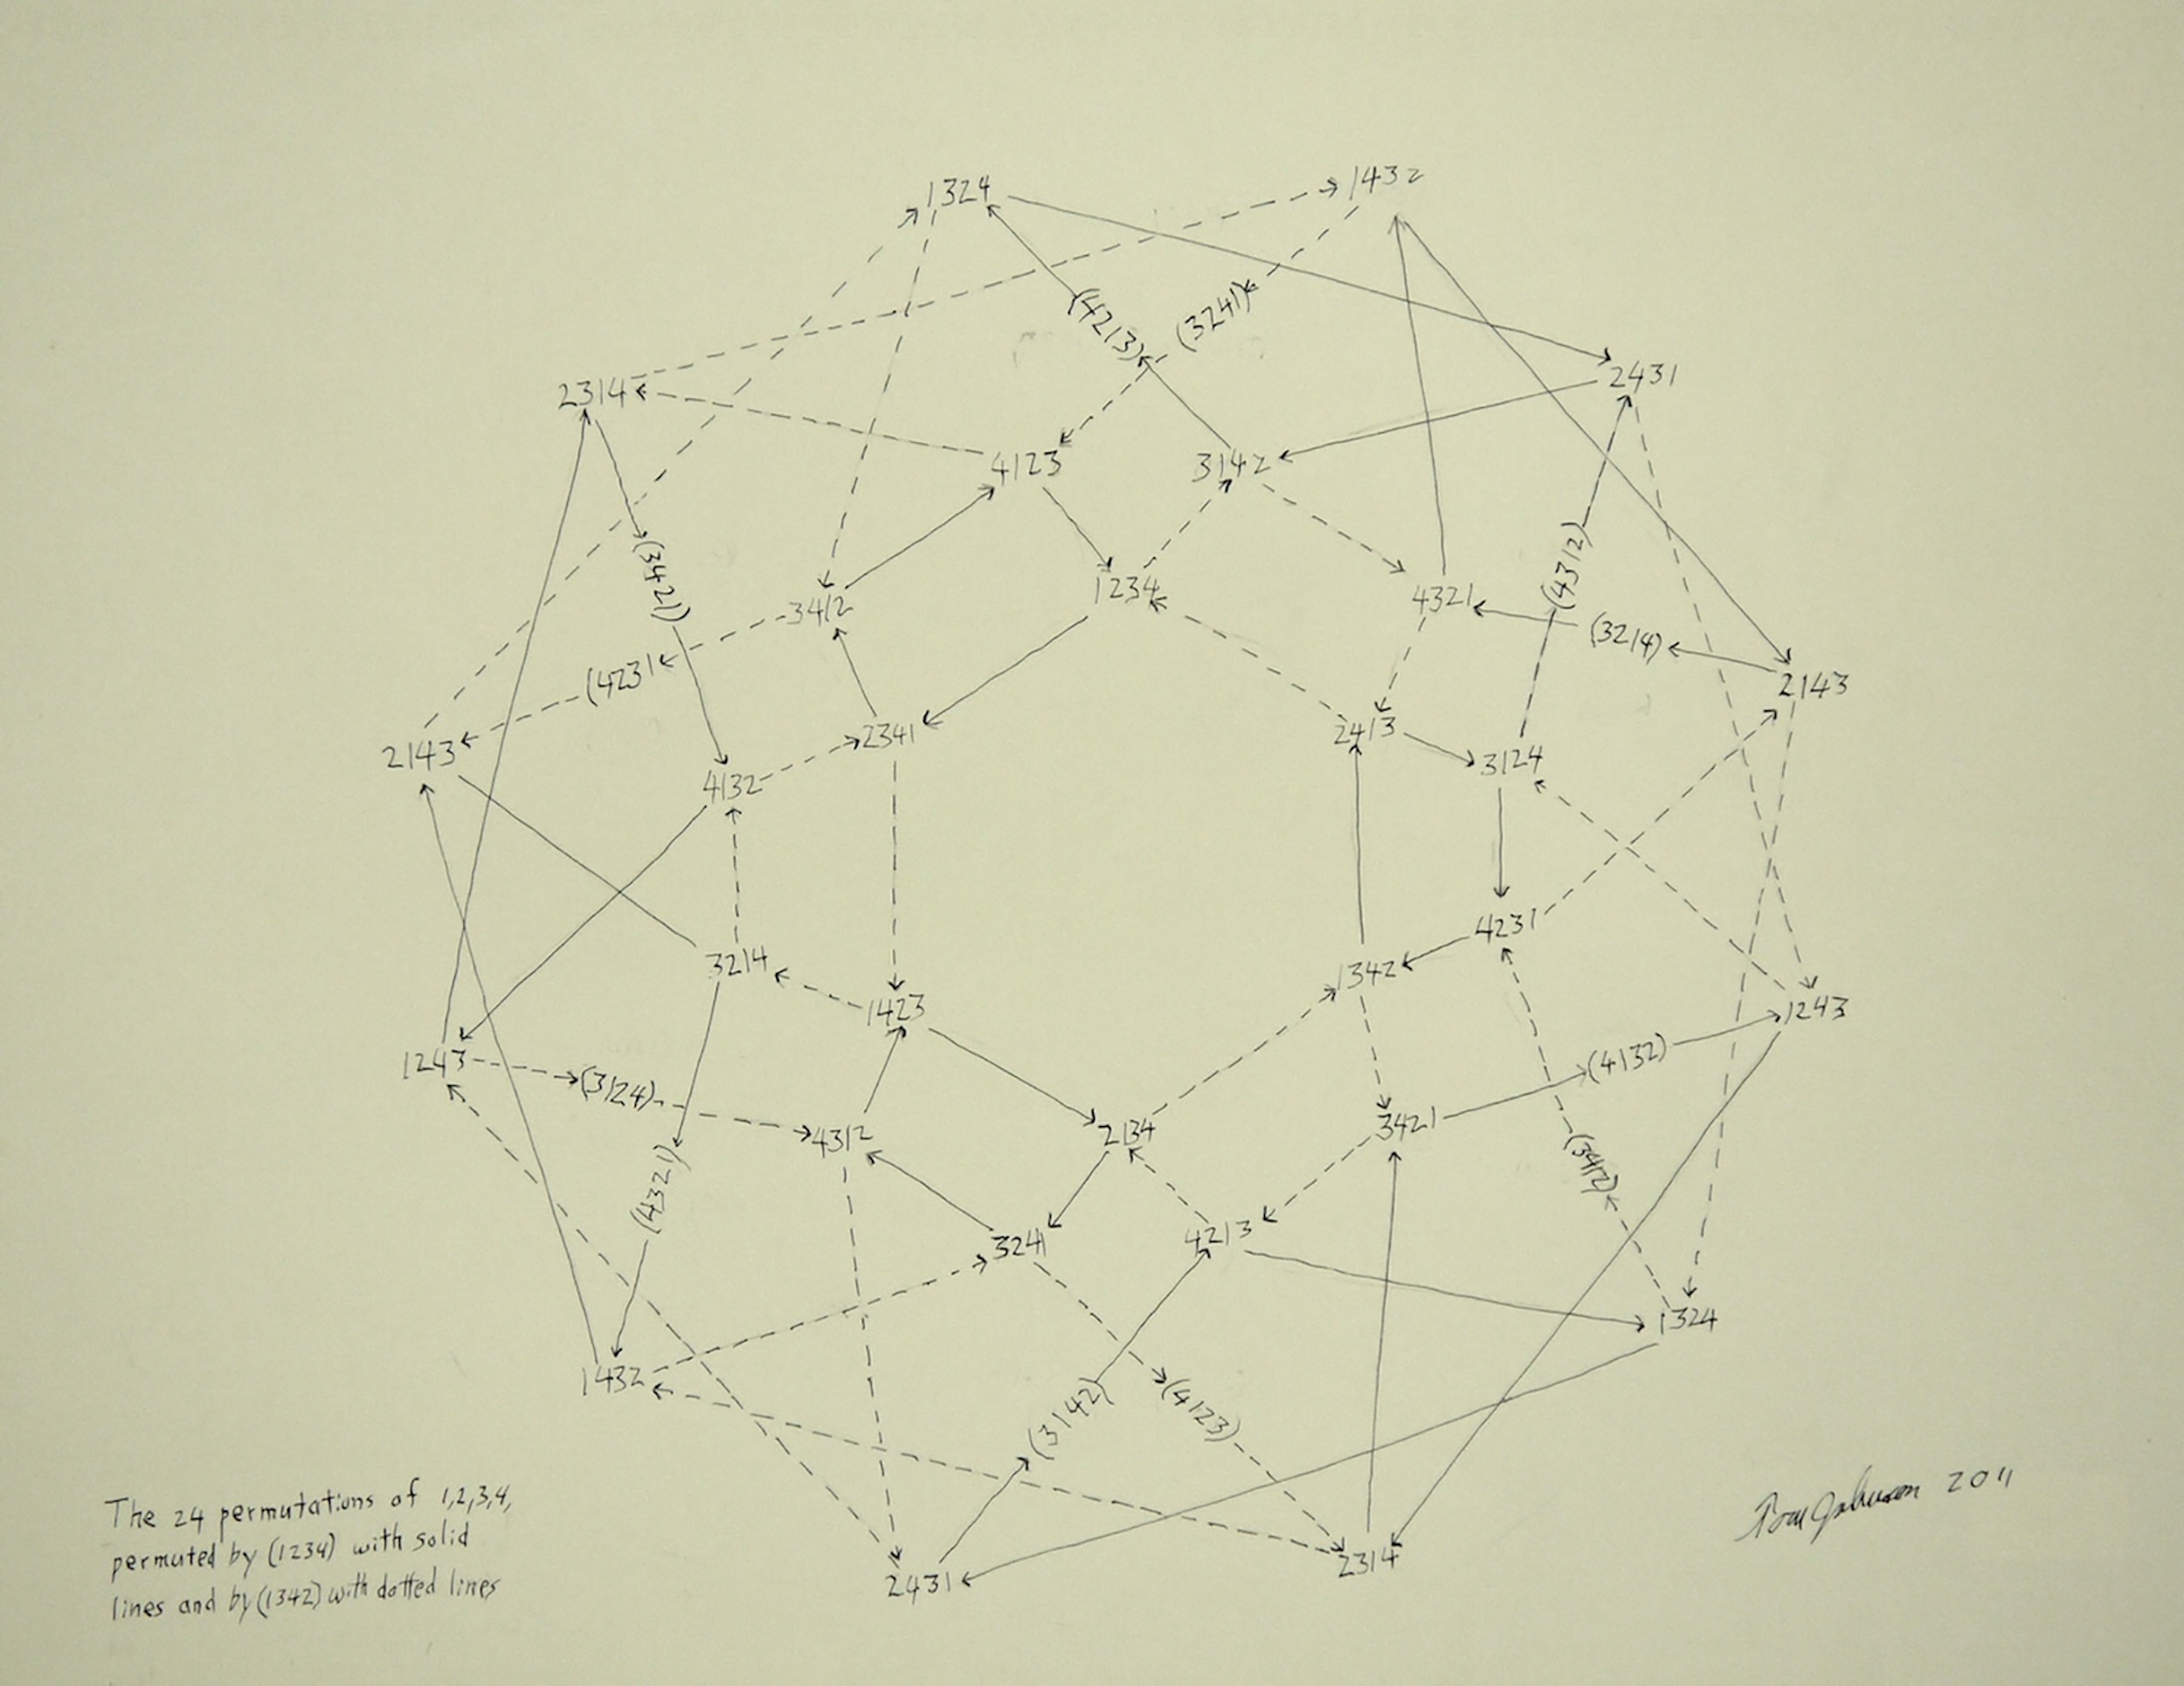 1324
1432
(4213)
(3241)
2431
2314
4123
3142
(3421)
(4312)
1234
3412
4321
(3214)
(4231
2143
2413
2341
2143
4132
3124
4231
3214
1342
1423
1243
1243
(3124)
(4132)
4312
2134
3421
(3412)
(4321)
3241
4213
1324
1432
(3142)
(4123)
2431
2314
The 24 permutations of 1,2,3,4,
permuted by (1234) with solid
lines and by (1342) with dotted lines
Tom Johnson 2011